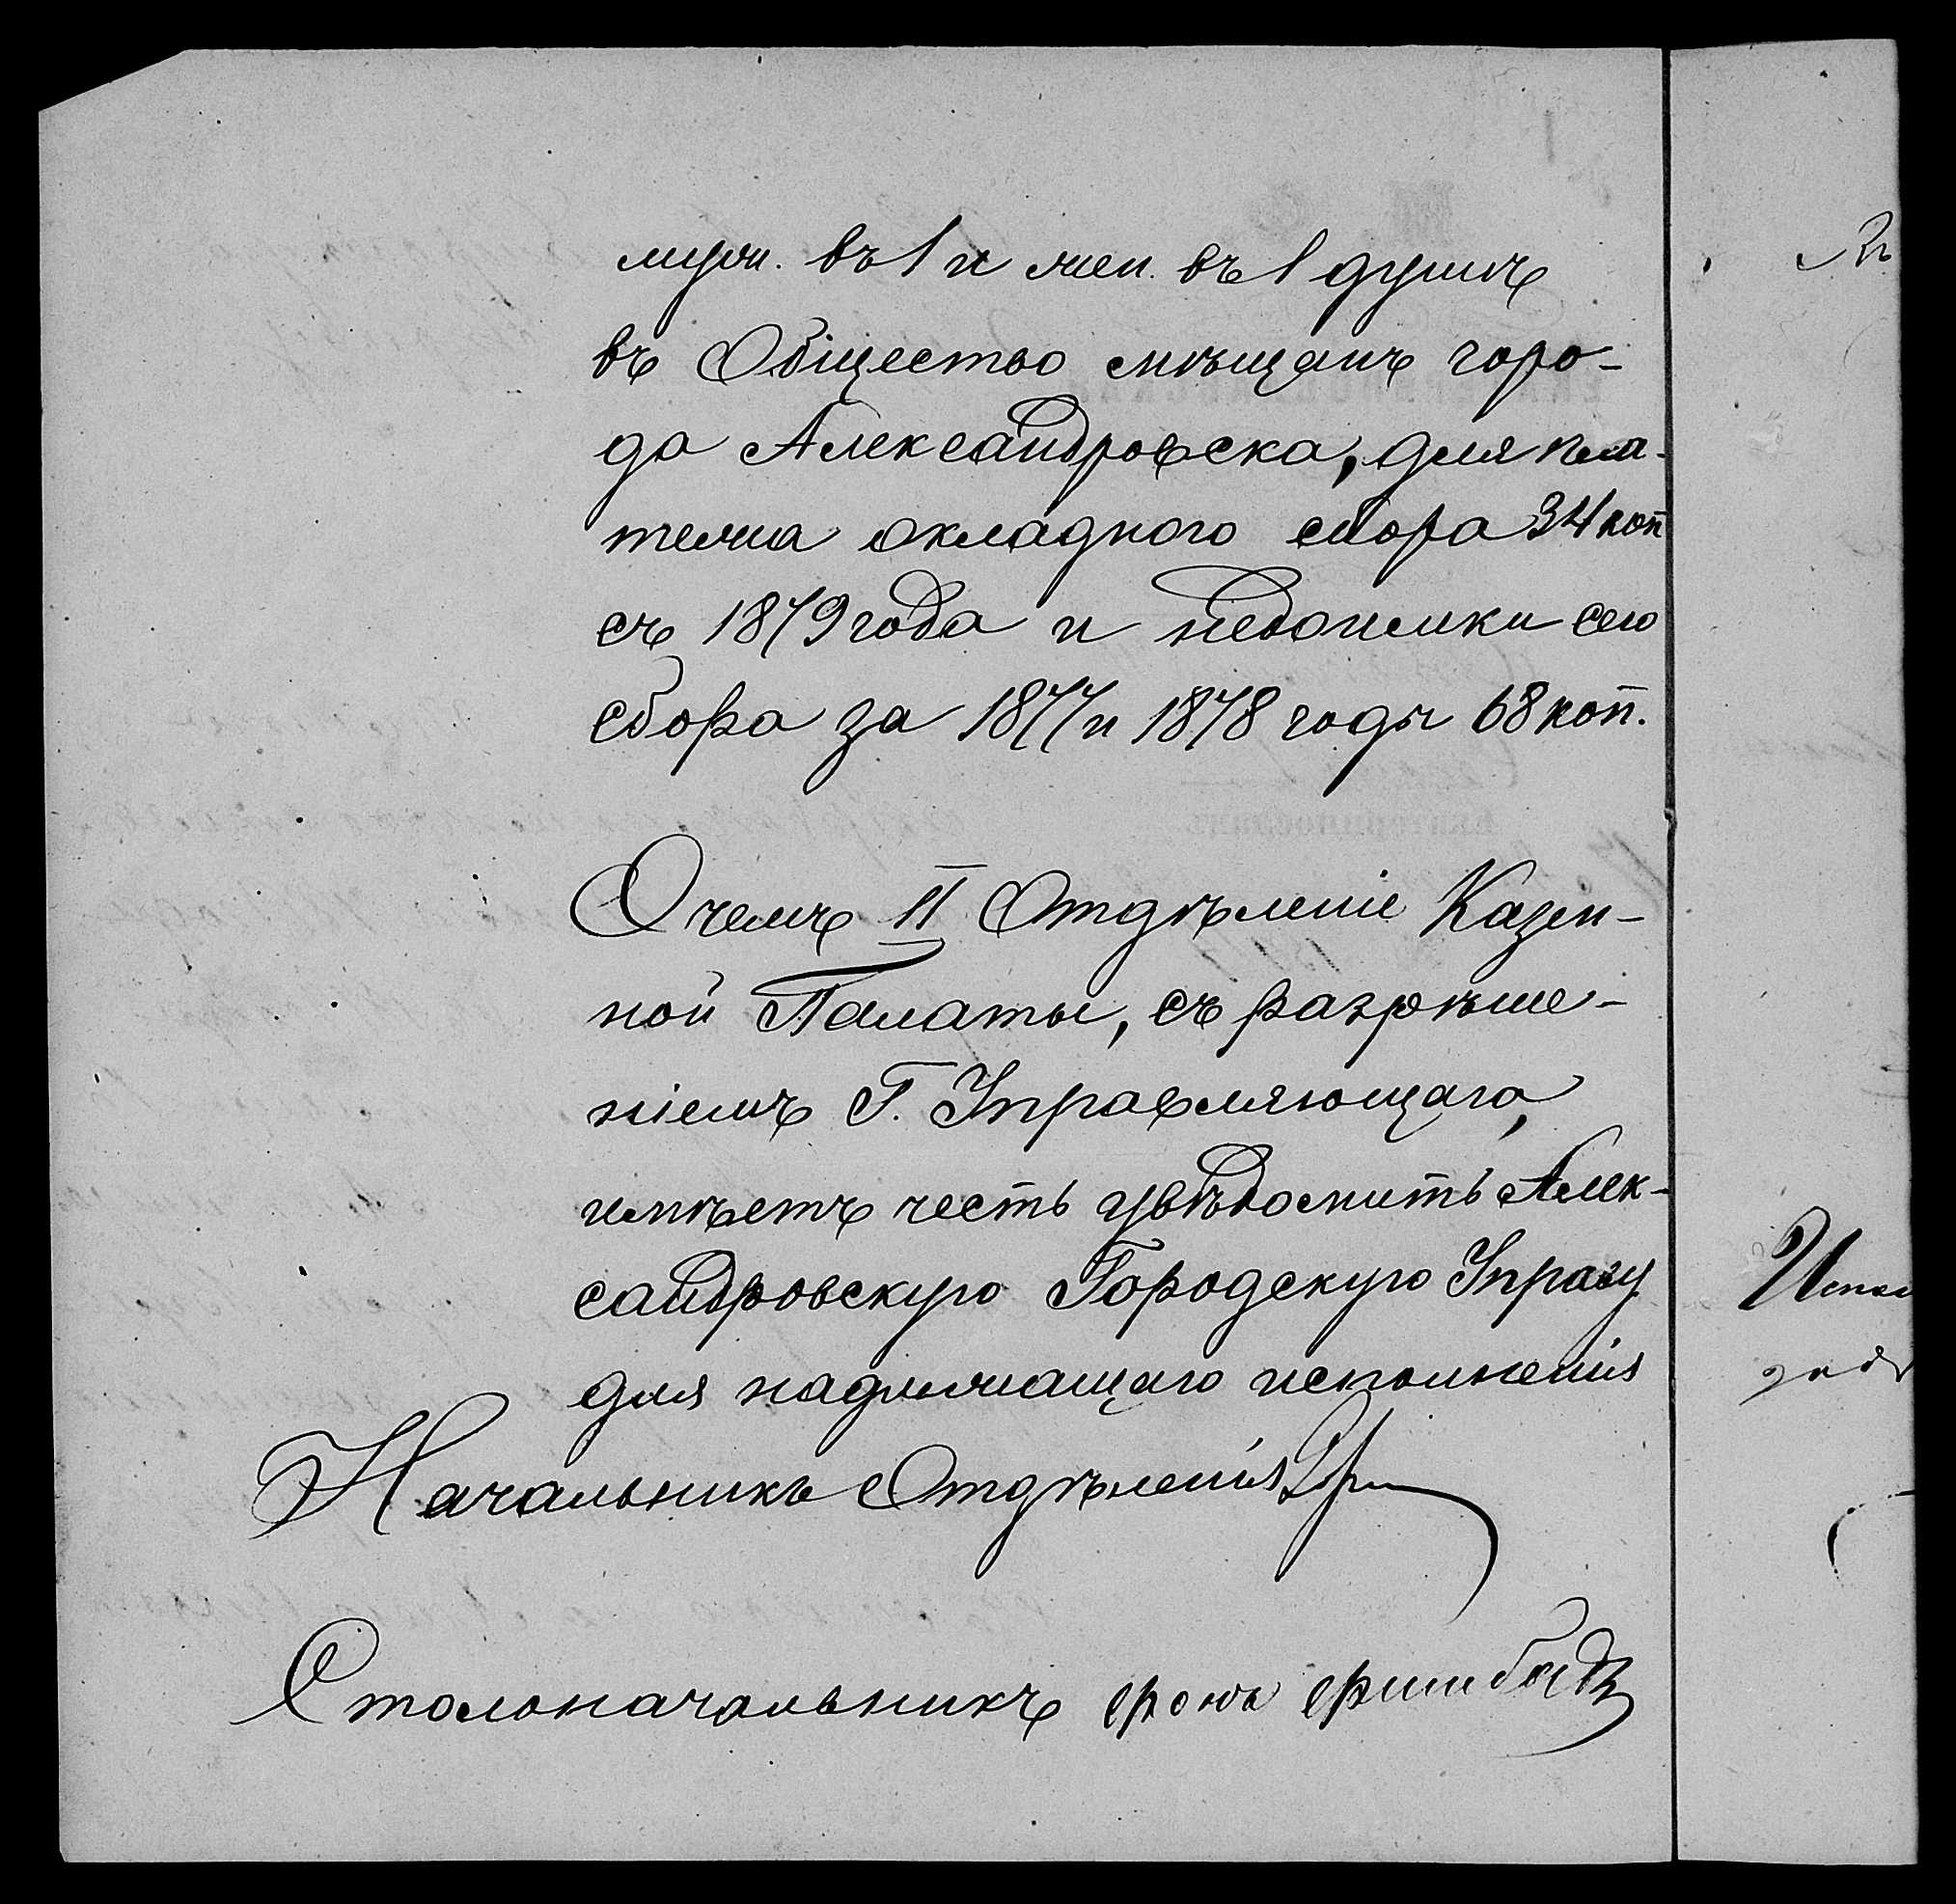 муж. въ 1 и жен. въ 1 душѣ
въ Общество мѣщанъ горо-
да Александровска, для пла-
тежа окладнаго сбора 34 коп
съ 1879 года и недоимки сего
сбора за 1877 и 1878 годы 68 коп.
О чемъ II Отдѣленіе Казен-
ной Палаты, съ разрѣше-
ніемъ Г. Управляющаго,
имѣетъ честь увѣдомить Алек-
сандровскую Городскую Управу
для надлежащаго исполненія
Начальникъ Отдѣленія
Столоначальникъ фонъ